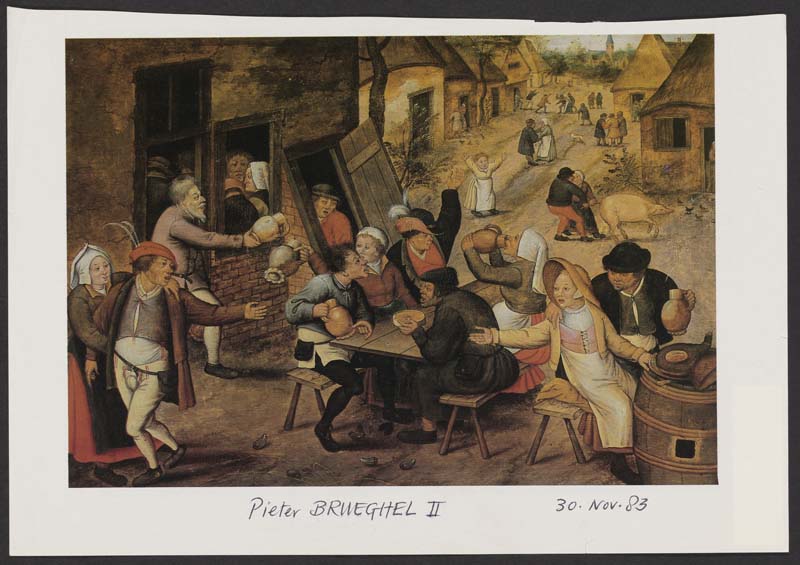 Pieter BRUEGHEL II 30. Nov. 83